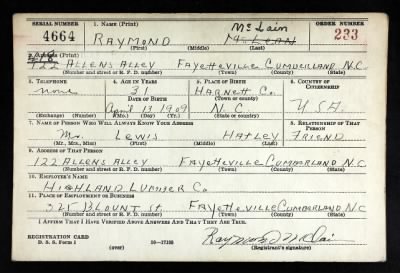 SERIAL NUMBER 1. NAME (Print) ORDER NUMBER
4664 RAYMOND McLain McLEAN 233
(First) (Middle) (Last)
2. ADDRESS (Print)
122 ALLENS ALLEY FAYETTEVILLE CUMBERLAND N.C.
(Number and street or R. F. D. number) (Town) (County) (State)
3. TELEPHONE 4. AGE IN YEARS 5. PLACE OF BIRTH 6. COUNTRY OF CITIZENSHIP
none 31 HARNETT Co.
DATE OF BIRTH (Town or county)
April 13 1909 N.C. USA
(Exchange) (Number) (Mo.) (Day) (Yr.) (State or country)
7. NAME OF PERSON WHO WILL ALWAYS KNOW YOUR ADDRESS 8. RELATIONSHIP OF THAT PERSON
LEWIS HATLEY FRIEND
(Mr., Mrs., Miss) (First) (Middle) (Last)
9. ADDRESS OF THAT PERSON
122 ALLENS ALLEY FAYETTEVILLE CUMBERLAND N.C.
(Number and street or R. F. D. number) (Town) (County) (State)
10. EMPLOYER'S NAME
HIGHLAND LUMBER Co
11. PLACE OF EMPLOYMENT OR BUSINESS
325 BLOUNT St. FAYETTEVILLE CUMBERLAND N.C.
(Number and street or R. F. D. number) (Town) (County) (State)
I AFFIRM THAT I HAVE VERIFIED ABOVE ANSWERS AND THAT THEY ARE TRUE.
REGISTRATION CARD
D. S. S. Form 1 (over) 16—17105 (Registrant's signature)